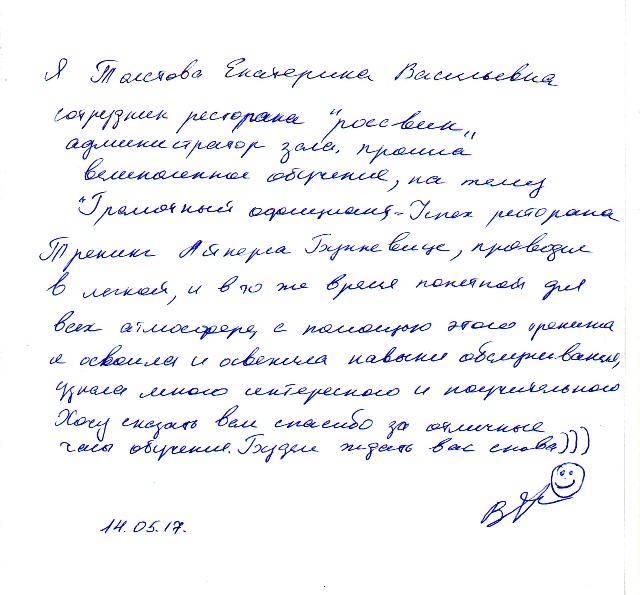 Я Толстова Екатерина Васильевна
сотрудник ресторана "росвик„
администратор зала. прошла
великолепное обучение, на тему
"Грамотный официант - Успех ресторана
Тренинг проводил
в легкой, и в то же время понятной для
всех атмосфере, с помощью этого тренинга
я освоила и освежила навыки обслуживания,
узнала много интересного и поучительного
Хочу сказать вам спасибо за отличные
часы обучения. Будем ждать вас снова)))
14.05.17.